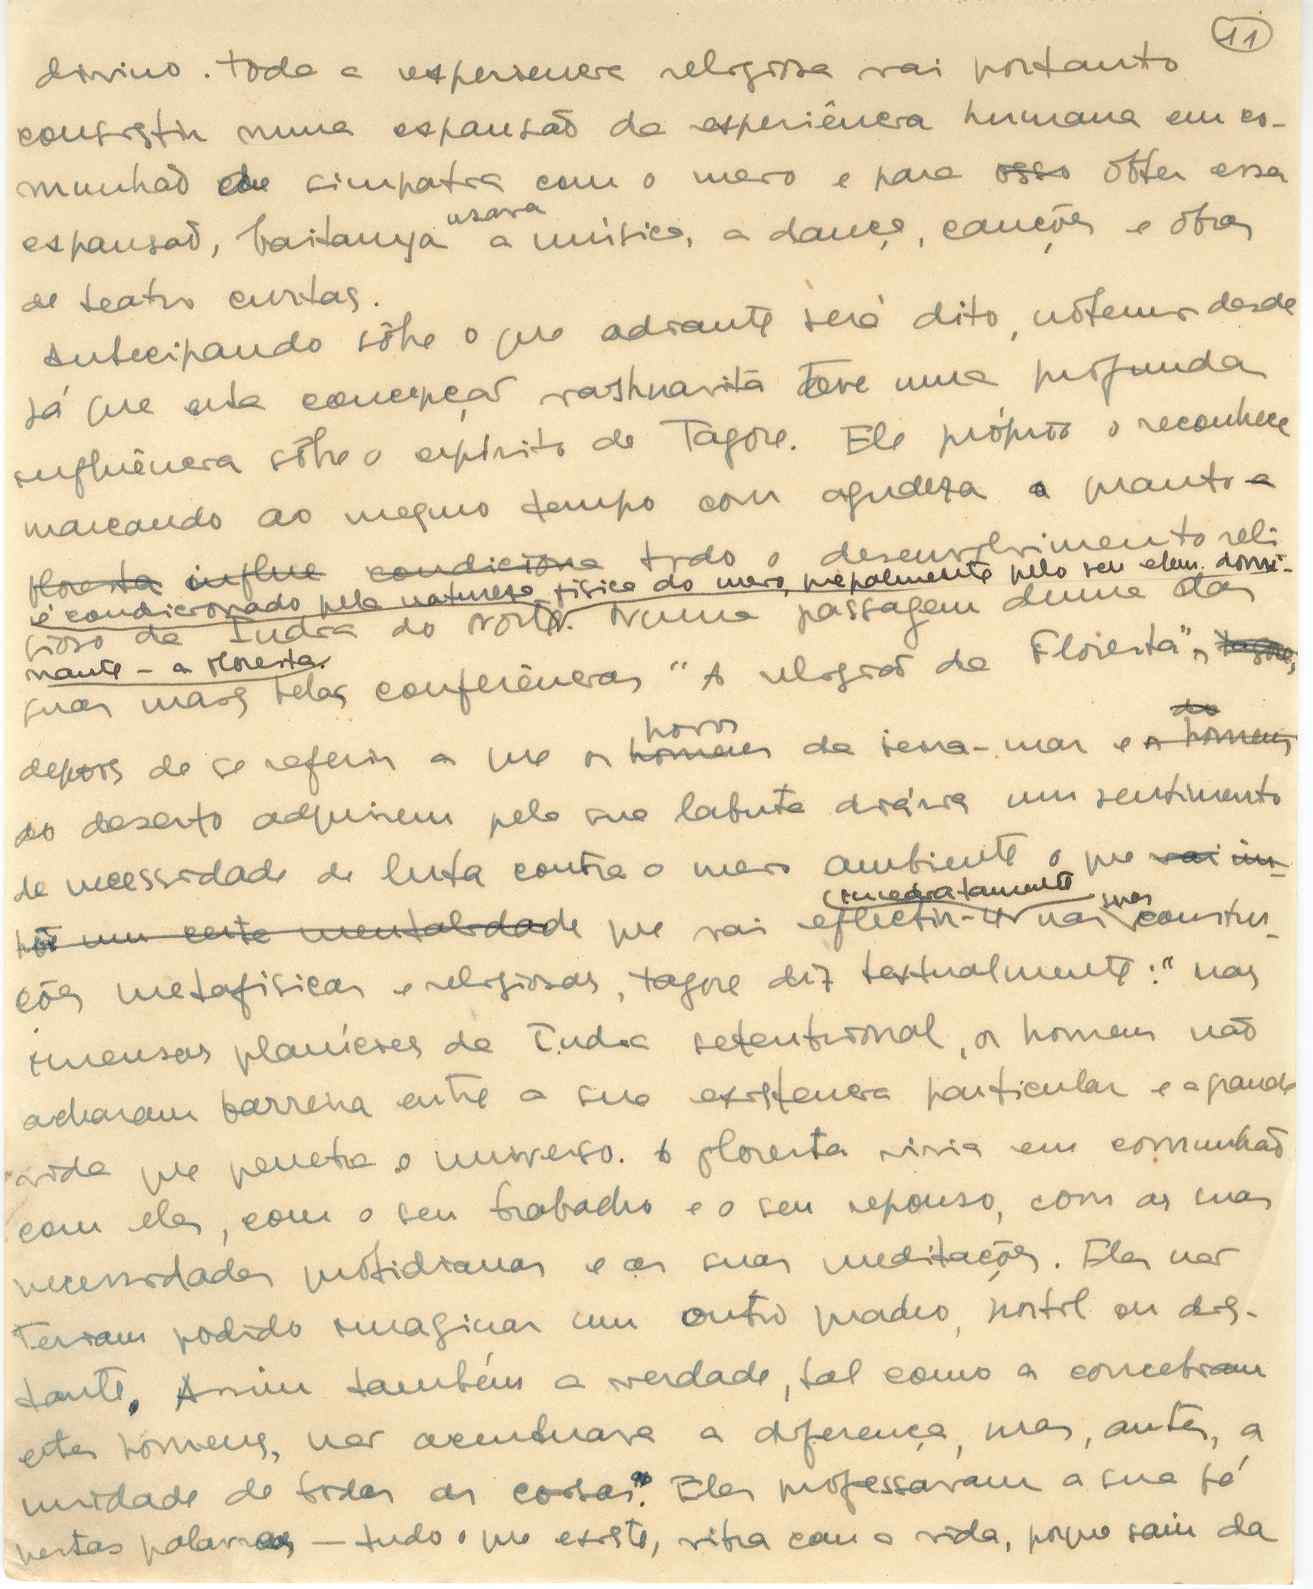 11
divino. Toda a experiencia religiosa vai portanto
consistir numa expansão da experiência humana em co-
munhão de simpatia com o meio e para isso obter essa
usava
expansão, Caitanya a música, a dança, canções e obras
de teatro curtas.
Antecipando sôbre o que adiante será dito, notemos desde
já que esta concepção vashnavita teve uma profunda
influência sôbre o espírito de Tagore. Ele próprio o reconhece
marcando ao mesmo tempo com agudeza o quanto a
floresta influe condiciona todo o desenvolvimento reli
é condicionado pela natureza física do meio, pcpalmente pelo seu elem. domi-
gioso da India do Norte. Numa passagem duma das
nante – a floresta.
suas mais belas conferências "A religião da Floresta", Tagore,
novos do
depois de se referir a que os homens da beira-mar e os homens
do deserto adquirem pela sua labuta diária um sentimento
de necessidade de luta contra o meio ambiente o que vai im-
imediatamente suas
por um certo mentalidade que vai reflectir-se nas constru-
ções metafísicas e religiosas, Tagore diz textualmente: "nas
imensas planícies da India setentrional, os homens não
acharam barreira entre a sua existencia particular e a grande
vida que penetra o universo. A floresta vivia em comunhão
com eles, com o seu trabalho e o seu repouso, com as suas
necessidades quotidianas e as suas meditações. Eles não
teriam podido imaginar um outro quadro, hostil ou dis-
tante. Assim também a verdade, tal como a concebiam
estes homens, não acentuava a diferença, mas, antes, a
unidade de todas as coisas". Eles professavam a sua fé
nestas palavras – tudo o que existe, vibra com a vida, porque saiu da